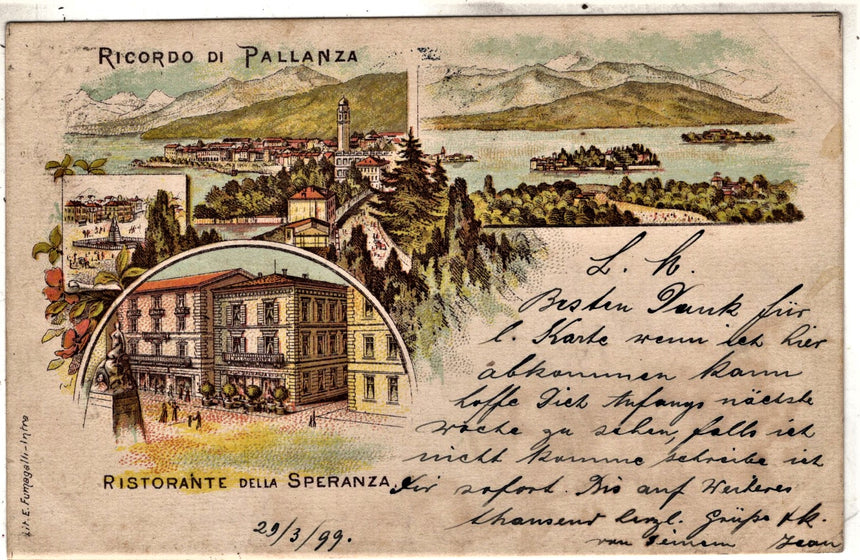 RICORDO DI PALLANZA
L. H.
Besten Dank für
l. Karte wenn ich hier
abkommen kann
hoffe Dich Anfangs nächste
Woche zu sehen, falls ich
nicht komme schreibe ich
Dir sofort. Bis auf Weiteres
thausend herzl. Grüße & k.
von Deinem Jean
RISTORANTE DELLA SPERANZA
29/3/99.
Lit. E. Fumagalli - Intra